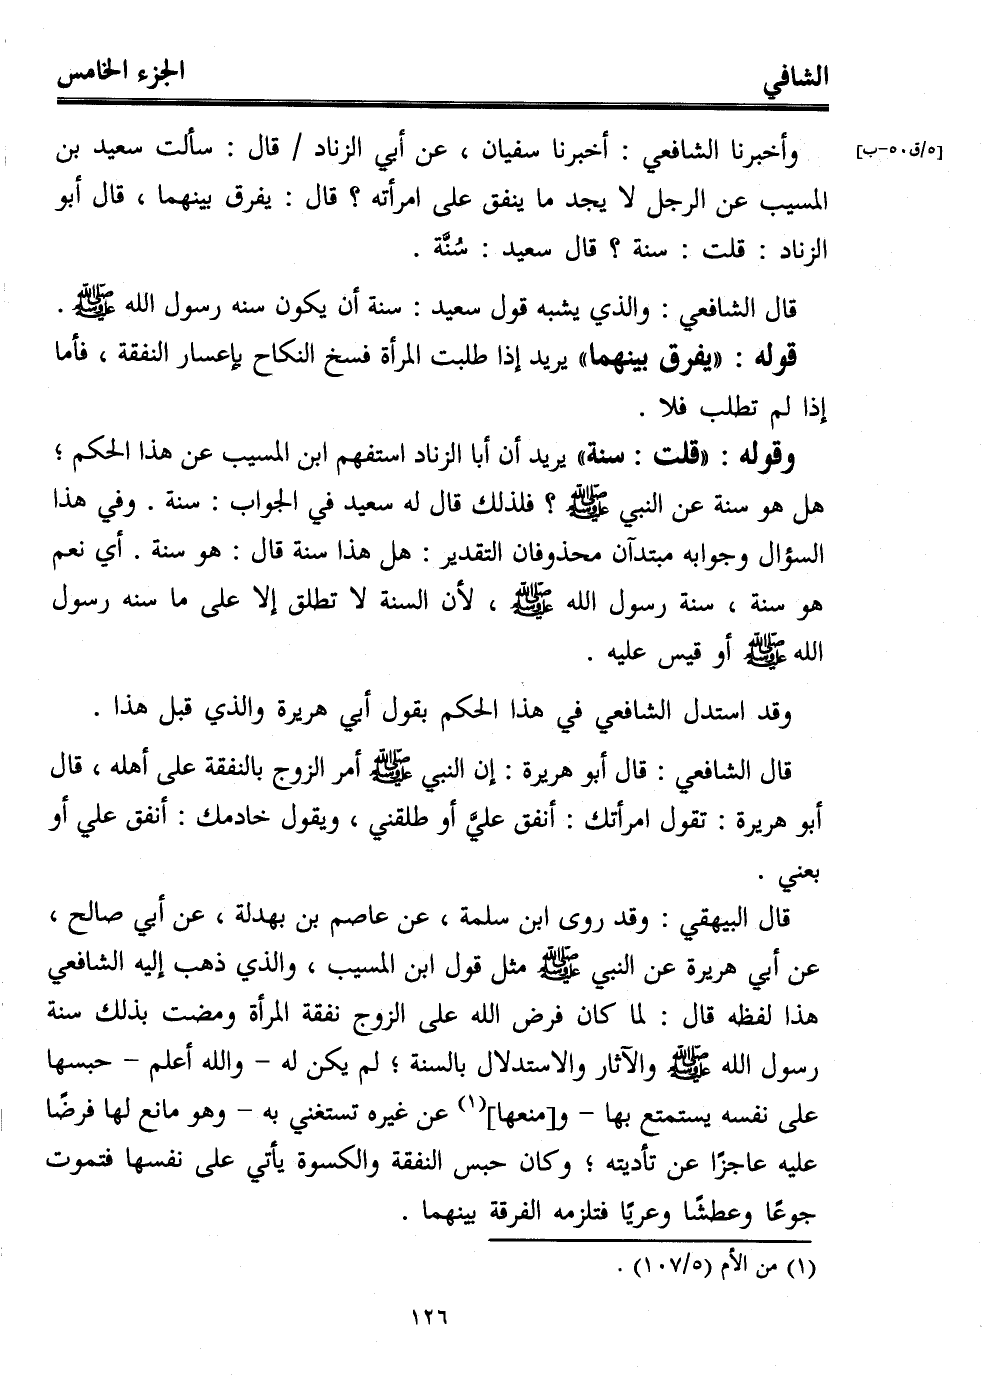 الشافي
الجزء الخامس
وأخبرنا الشافعي : أخبرنا سفيان ، عن أبي الزناد / قال : سألت سعيد بن
[٥/ق٥٠-ب]
المسيب عن الرجل لا يجد ما ينفق على امرأته ؟ قال : يفرق بينهما ، قال أبو
الزناد : قلت : سنة ؟ قال سعيد : سُنَّة .
قال الشافعي : والذي يشبه قول سعيد : سنة أن يكون سنه رسول الله ﷺ .
قوله : «يفرق بينهما» يريد إذا طلبت المرأة فسخ النكاح بإعسار النفقة ، فأما
إذا لم تطلب فلا .
وقوله : «قلت : سنة» يريد أن أبا الزناد استفهم ابن المسيب عن هذا الحكم ؛
هل هو سنة عن النبي ﷺ ؟ فلذلك قال له سعيد في الجواب : سنة . وفي هذا
السؤال وجوابه مبتدآن محذوفان التقدير : هل هذا سنة قال : هو سنة . أي نعم
هو سنة ، سنة رسول الله ﷺ ، لأن السنة لا تطلق إلا على ما سنه رسول
الله ﷺ أو قيس عليه .
وقد استدل الشافعي في هذا الحكم بقول أبي هريرة والذي قبل هذا .
قال الشافعي : قال أبو هريرة : إن النبي ﷺ أمر الزوج بالنفقة على أهله ، قال
أبو هريرة : تقول امرأتك : أنفق عليَّ أو طلقني ، ويقول خادمك : أنفق علي أو
بعني .
قال البيهقي : وقد روى ابن سلمة ، عن عاصم بن بهدلة ، عن أبي صالح ،
عن أبي هريرة عن النبي ﷺ مثل قول ابن المسيب ، والذي ذهب إليه الشافعي
هذا لفظه قال : لما كان فرض الله على الزوج نفقة المرأة ومضت بذلك سنة
رسول الله ﷺ والآثار والاستدلال بالسنة ؛ لم يكن له – والله أعلم – حبسها
على نفسه يستمتع بها – و[منعها](١) عن غيره تستغني به – وهو مانع لها فرضًا
عليه عاجزًا عن تأديته ؛ وكان حبس النفقة والكسوة يأتي على نفسها فتموت
جوعًا وعطشًا وعريًا فتلزمه الفرقة بينهما .
(١) من الأم (١٠٧/٥) .
١٢٦